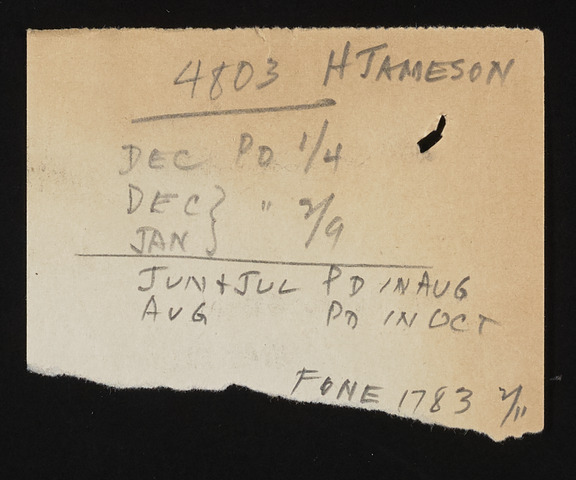 4803 H JAMESON
DEC PD 1/4
DEC } " 2/9
JAN }
JUN + JUL PD IN AUG
AUG PD IN OCT
FONE 1783 2/11